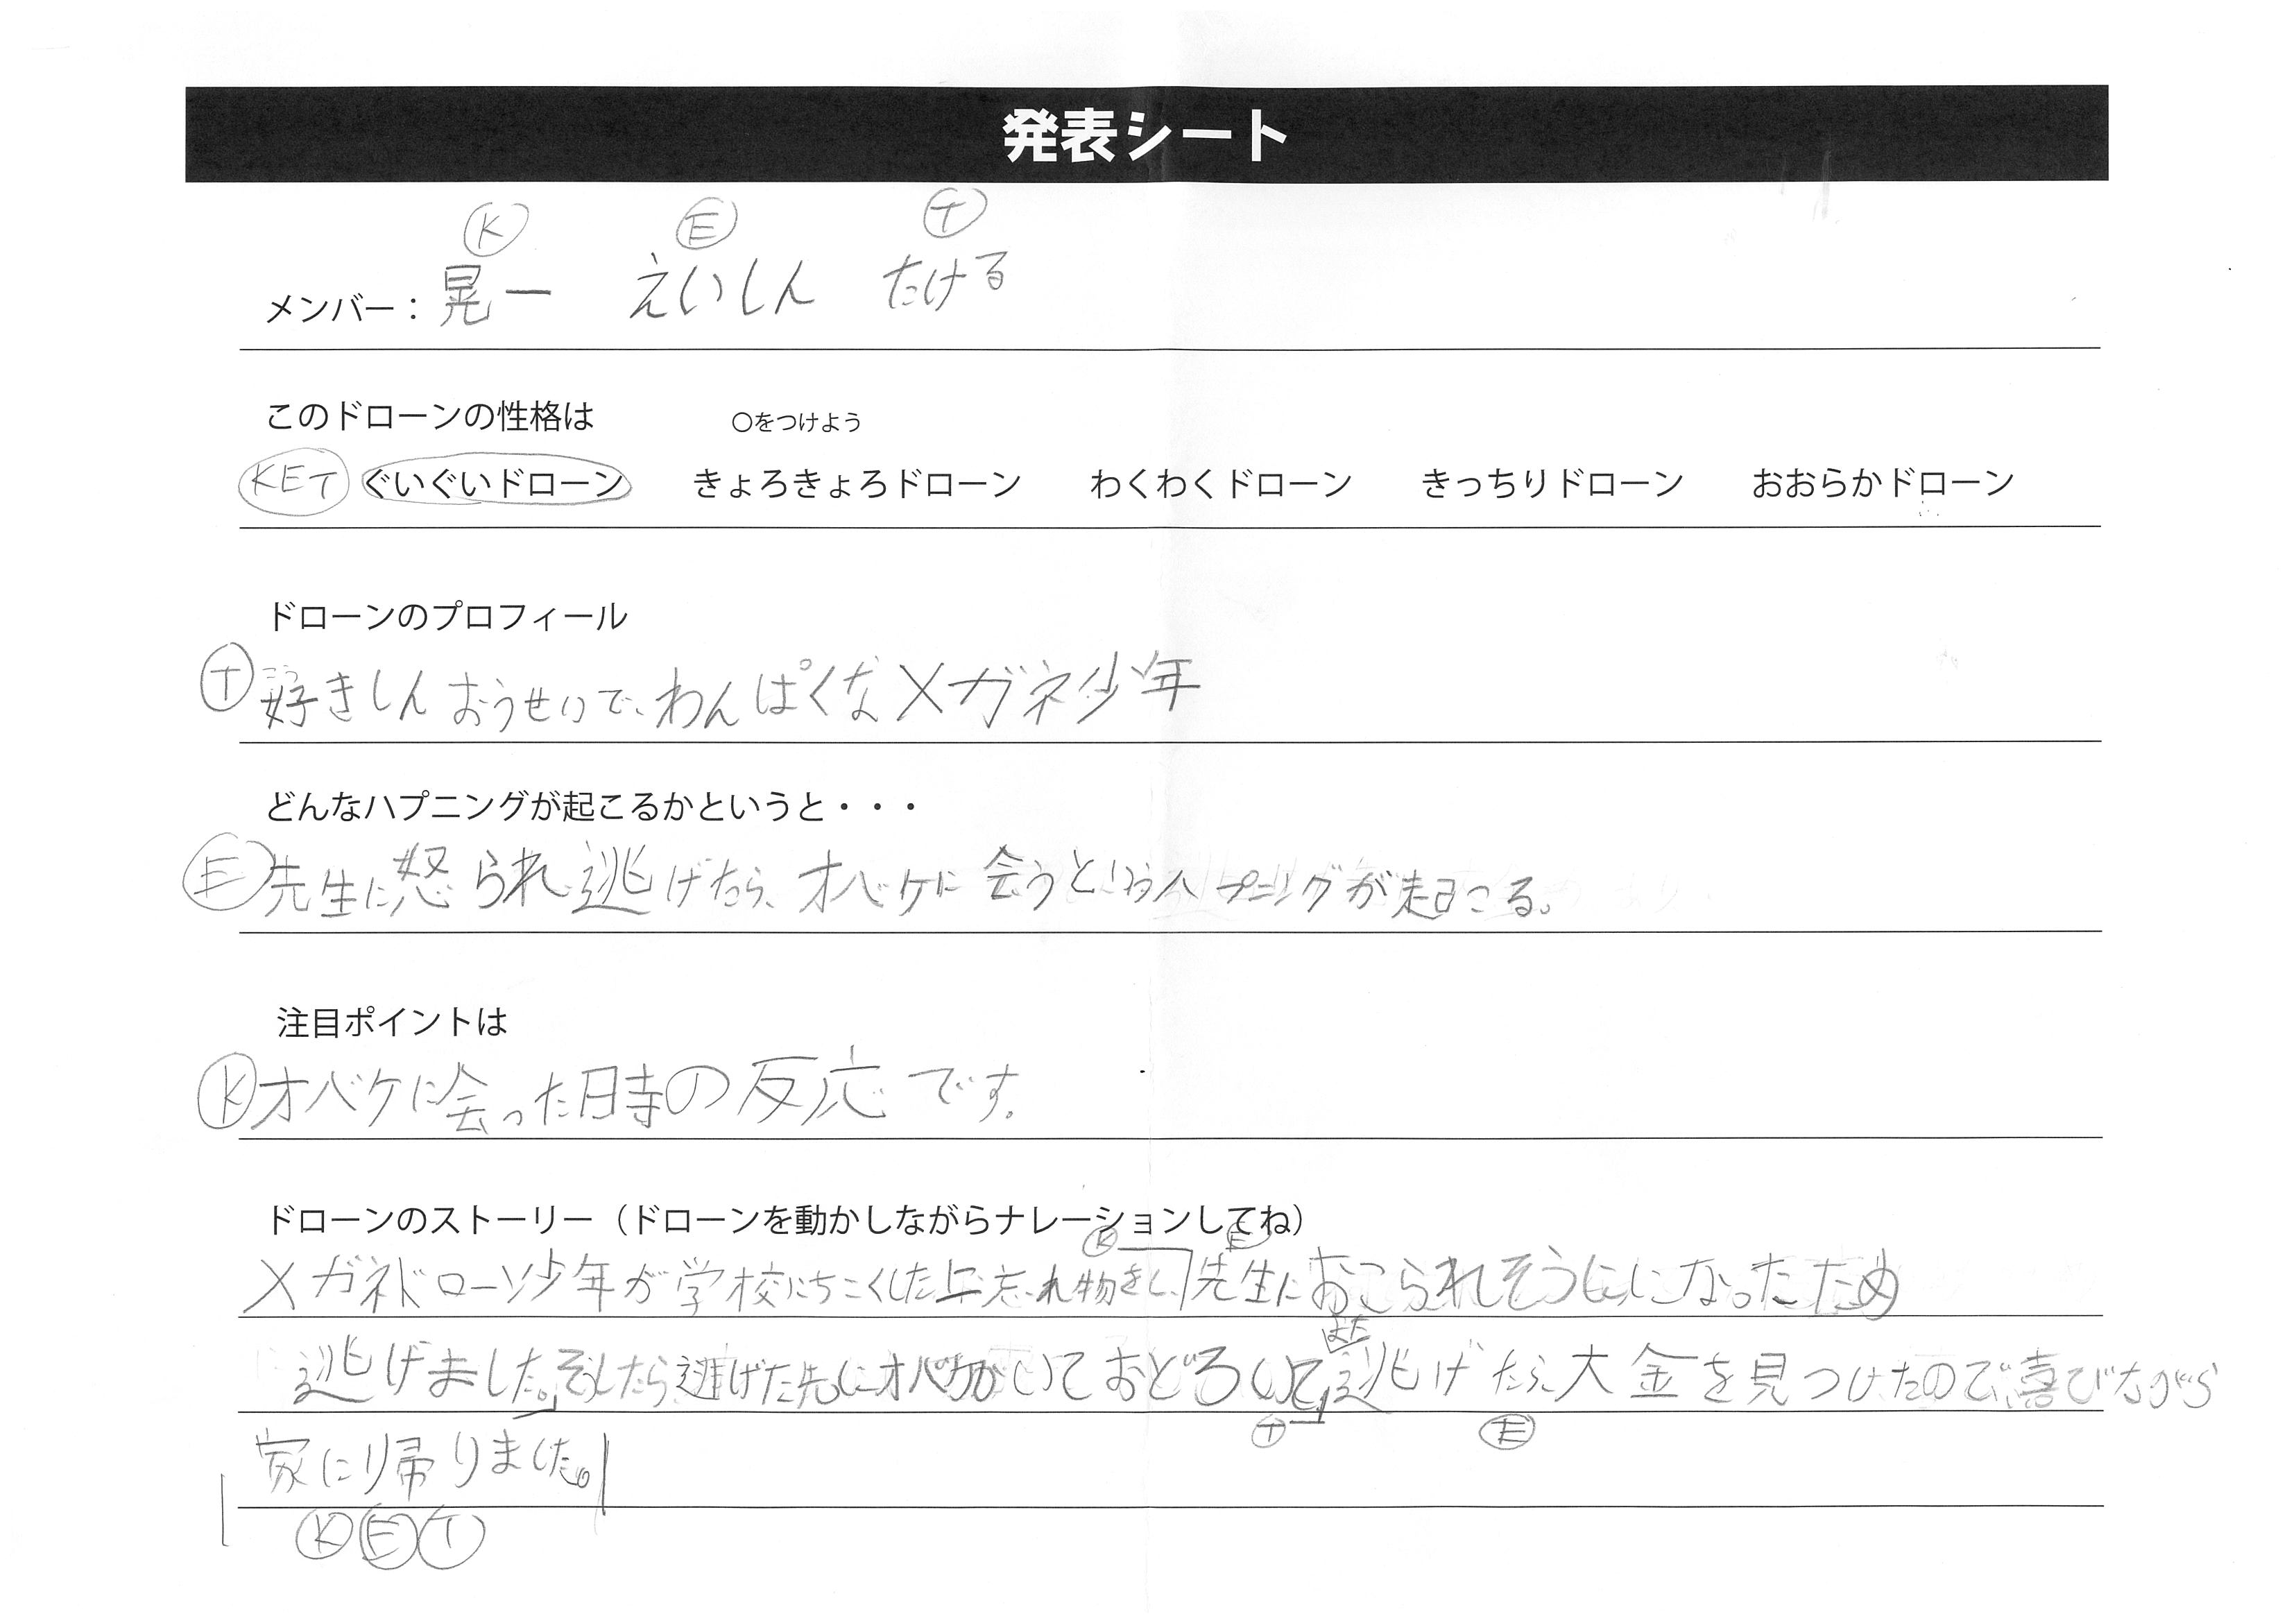 発表シート
Ⓚ Ⓔ Ⓣ
メンバー： 晃一 えいしん たける
このドローンの性格は ○をつけよう
KET ぐいぐいドローン きょろきょろドローン わくわくドローン きっちりドローン おおらかドローン
ドローンのプロフィール
こう
Ⓣ 好きしんおうせいで、わんぱくなメガネ少年
どんなハプニングが起こるかというと・・・
Ⓔ 先生に怒られ逃げたら、オバケに会うというハプニングが起こる。
注目ポイントは
Ⓚ オバケに会った時の反応です。
ドローンのストーリー（ドローンを動かしながらナレーションしてね）
Ⓚ Ⓔ
メガネドローン少年が学校にちこくした上忘れ物をし、先生におこられそうにになったため
また
逃げました。そしたら逃げた先にオバケがいておどろいて、逃げたら、大金を見つけたので、喜びながら
Ⓣ Ⓔ
家に帰りました。
Ⓚ Ⓔ Ⓣ